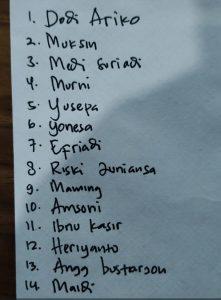 1. Dodi Ariko
2. Muksin
3. Medi Suriadi
4. Murni
5. Yusepa
6. Yonesa
7. Efriadi
8. Riski Juniansa
9. Mawing
10. Amsoni
11. Ibnu Kasir
12. Heriyanto
13. Angg bustarson
14. Maidi